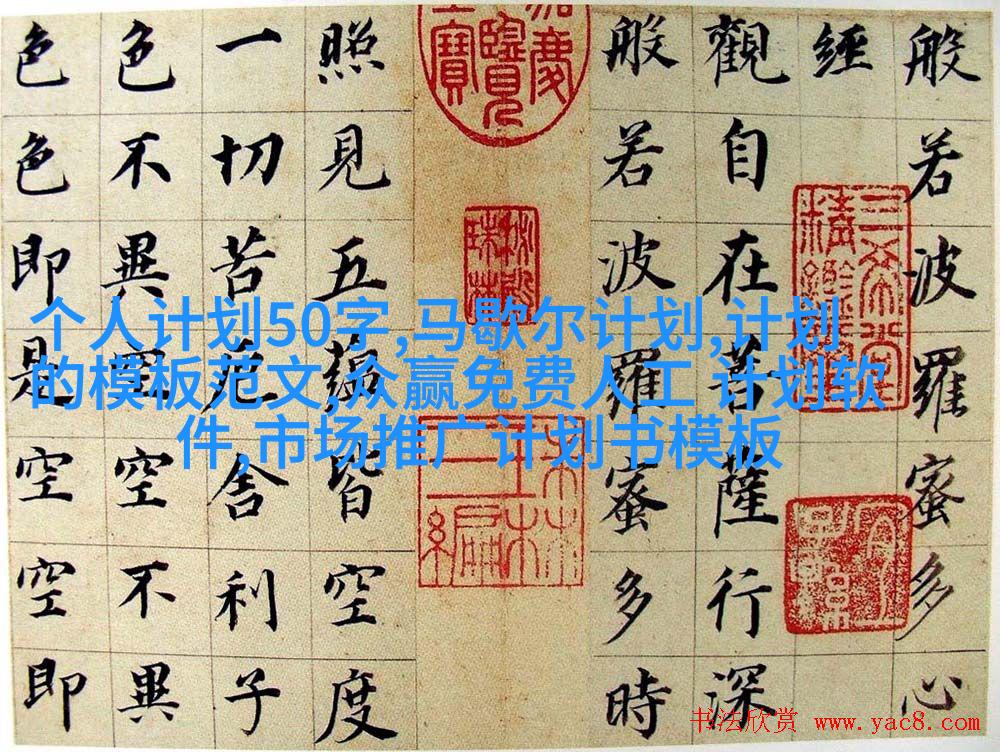 般若波羅蜜多心
經
觀自在菩薩行深
般若波羅蜜多時
照見五蘊皆空度
一切苦厄舍利子
色不異空空不異
色色即是空空即
个人计划50字,马歇尔计划,计划
的模板范文,众赢免费人工 计划软
件,市场推广计划书模板
书法欣赏 www.yac8.com